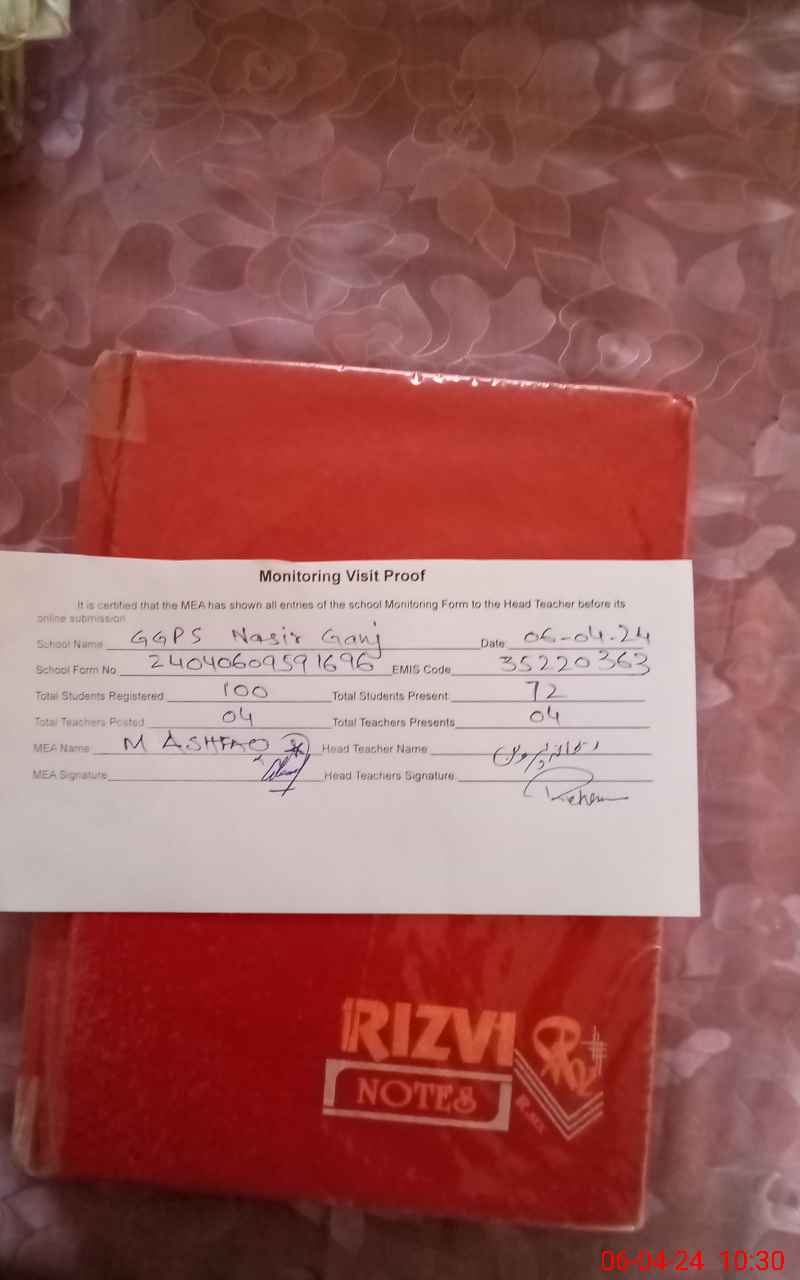 Monitoring Visit Proof
It is certified that the MEA has shown all entries of the school Monitoring Form to the Head Teacher before its
online submission
School Name GGPS Nasir Ganj Date 06-04-24
School Form No 24040609591696 EMIS Code 35220363
Total Students Registered 100 Total Students Present 72
Total Teachers Posted 04 Total Teachers Presents 04
MEA Name M ASHFAQ Head Teacher Name
MEA Signature Head Teachers Signature
RIZVI
NOTES
06-04-24 10:30